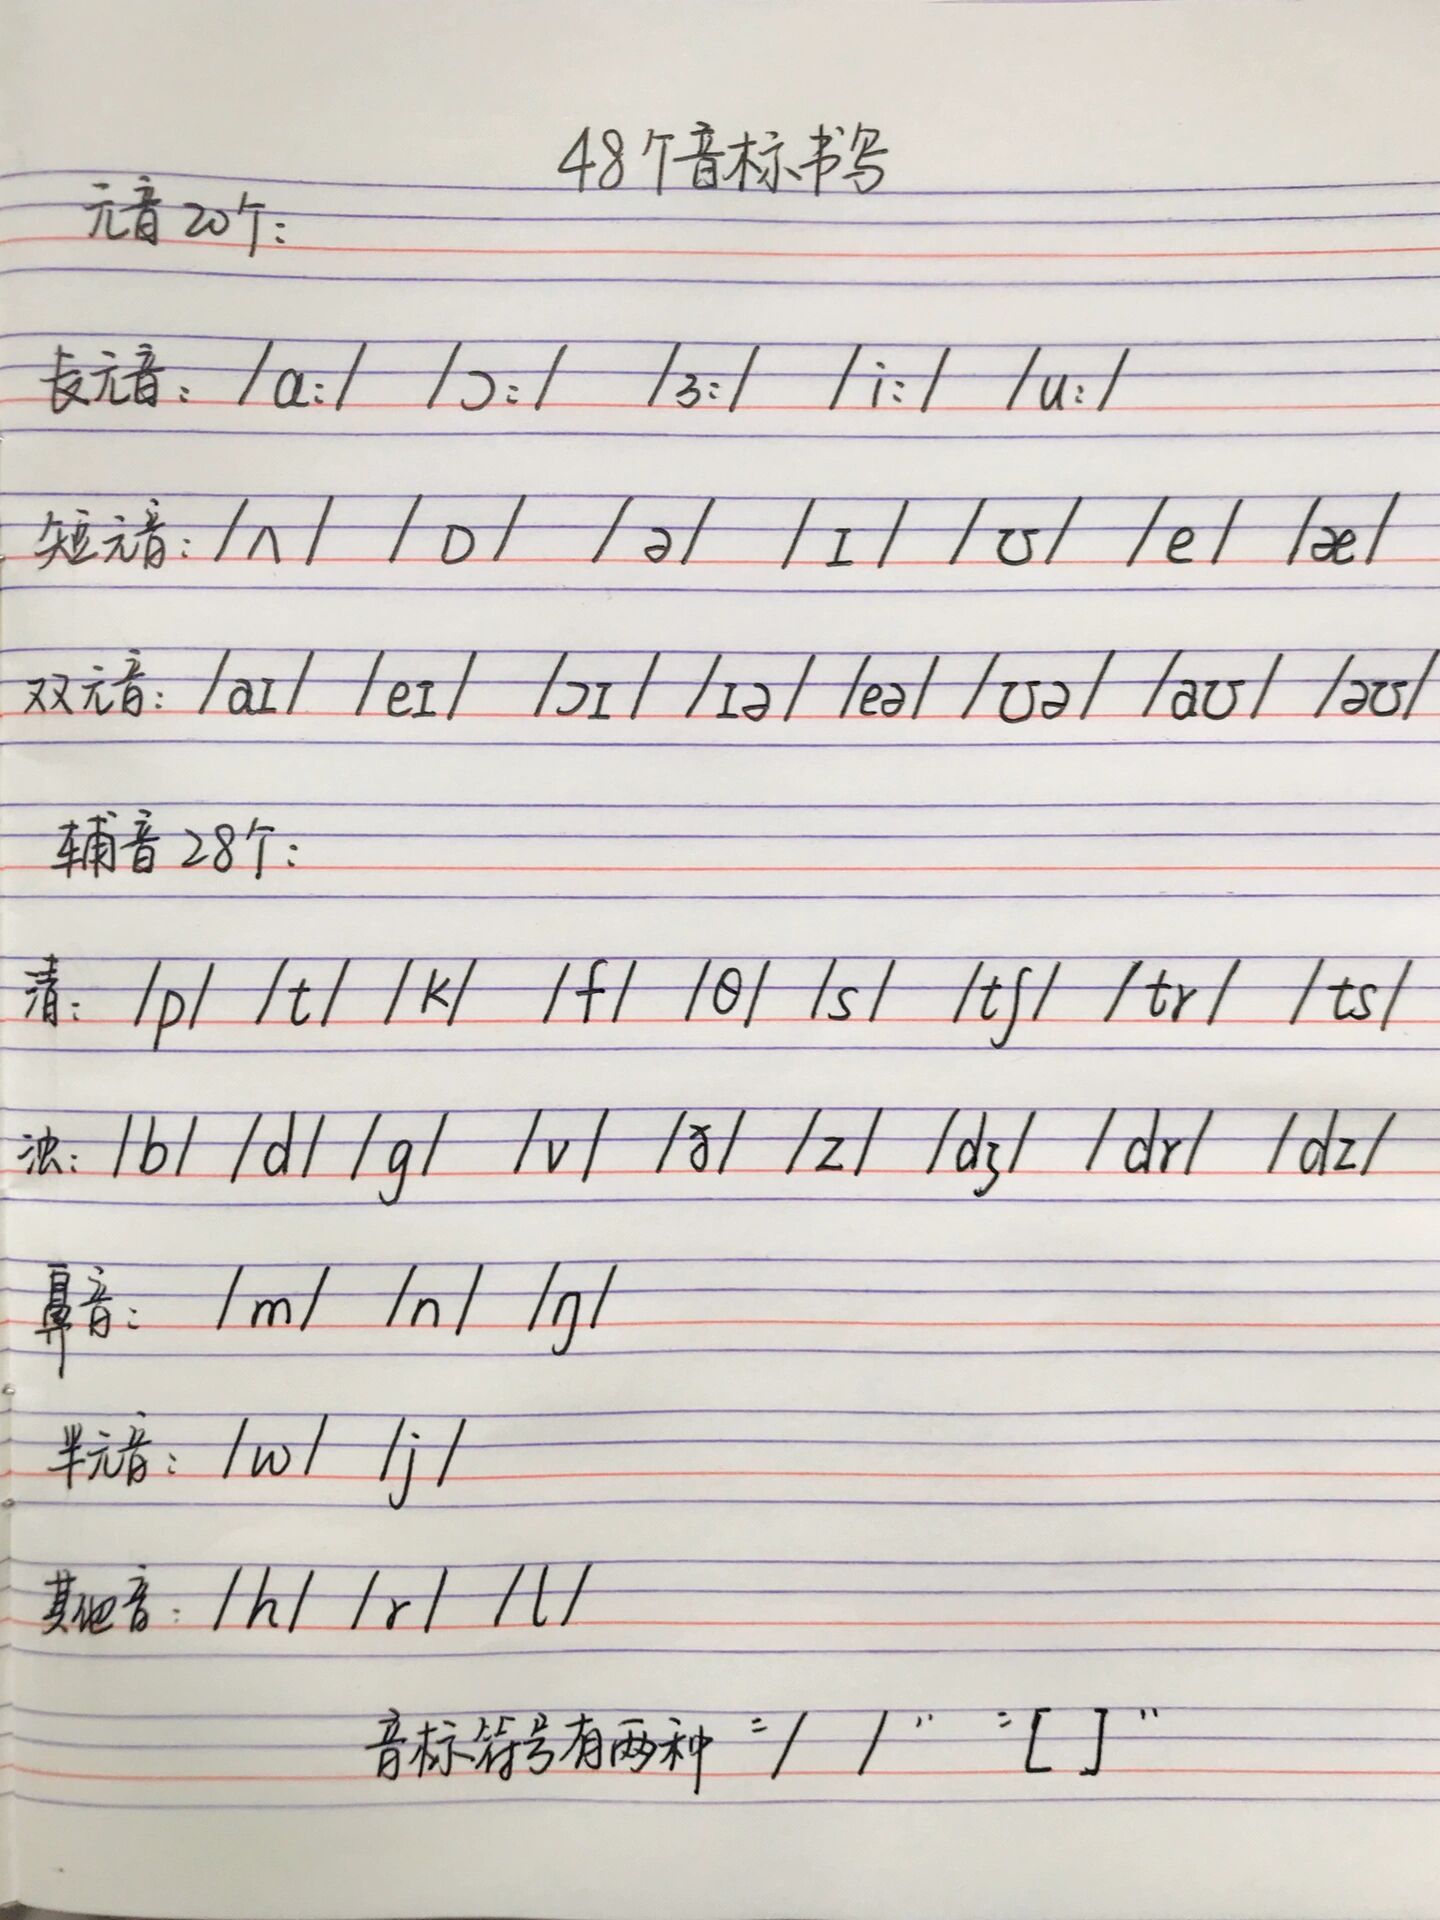 48个音标书写
元音20个:
长元音: /ɑ:/ /ɔ:/ /ɜ:/ /i:/ /u:/
短元音: /ʌ/ /ɒ/ /ə/ /ɪ/ /ʊ/ /e/ /æ/
双元音: /aɪ/ /eɪ/ /ɔɪ/ /ɪə/ /eə/ /ʊə/ /aʊ/ /əʊ/
辅音28个:
清: /p/ /t/ /k/ /f/ /θ/ /s/ /tʃ/ /tr/ /ts/
浊: /b/ /d/ /g/ /v/ /ð/ /z/ /dʒ/ /dr/ /dz/
鼻音: /m/ /n/ /ŋ/
半元音: /w/ /j/
其他音: /h/ /r/ /l/
音标符号有两种 "/ /" "[ ]"